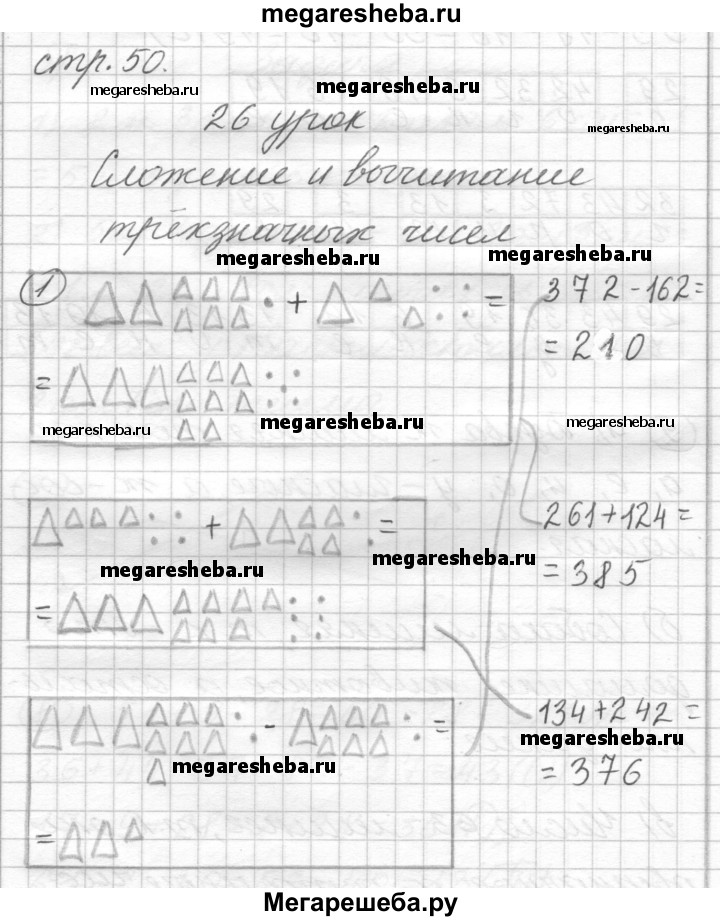 megaresheba.ru
стр. 50.
megaresheba.ru
megaresheba.ru
26 урок
megaresheba.ru
Сложение и вычитание
трёхзначных чисел
megaresheba.ru
megaresheba.ru
1 + =
372-162=
= 210
=
megaresheba.ru
megaresheba.ru
megaresheba.ru
+ =
261+124=
megaresheba.ru
megaresheba.ru
= 385
=
- =
134+242=
megaresheba.ru
megaresheba.ru
= 376
=
Мегарешеба.ру